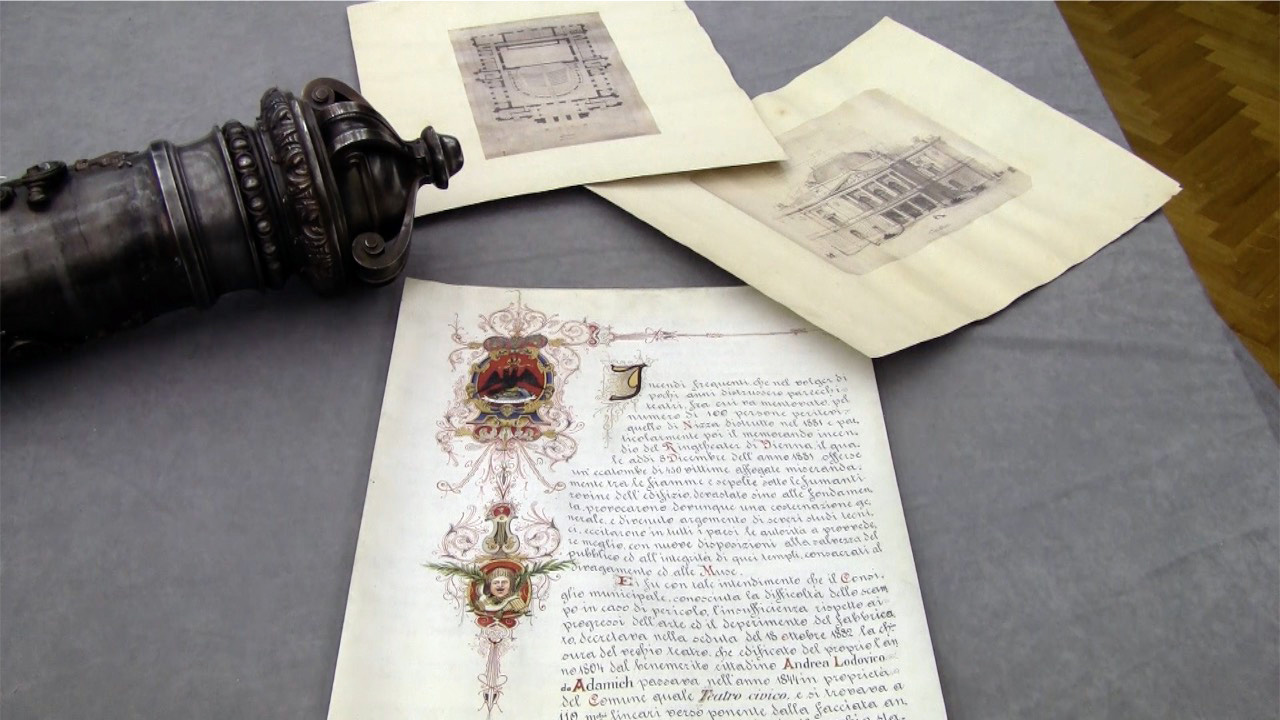 Incendi frequenti che nel volger di
pochi anni distrussero parecchi
teatri, fra cui va mentovato pel
numero di 100 persone perite vi
quello di Nizza distrutto nel 1881 e par-
ticolarmente poi il memorando incen-
dio del Ringtheater di Vienna, il qua-
le addì 8 Dicembre dell'anno 1881 offerse
un'ecatombe di 450 vittime affogate miseranda-
mente tra le fiamme e sepolte sotto le fumanti
rovine dell'edifizio, devastato sino alle fondamen
ta, provocarono dovunque una costernazione ge-
nerale, e divenuto argomento di severi studi tecni-
ci, eccitarono in tutti i paesi le autorità a provvede-
re meglio, con nuove disposizioni alla salvezza del
pubblico ed all'integrità di quei templi, consacrati al
divagamento ed alle Muse.
Ei fu con tale intendimento che il Consi-
glio municipale, conosciuta la difficoltà dello scam
po in caso di pericolo, l'insufficienza rispetto ai
progressi dell'arte ed il deperimento del fabbrica
to, decretava nella seduta del 18 ottobre 1882 la chi-
usura del vecchio teatro, che edificato del proprio l'an
no 1804 dal benemerito cittadino Andrea Lodovico
de Adamich passava nell'anno 1844 in proprietà
del Comune quale Teatro civico, e si trovava a
110 mtri lineari verso ponente dalla facciata an